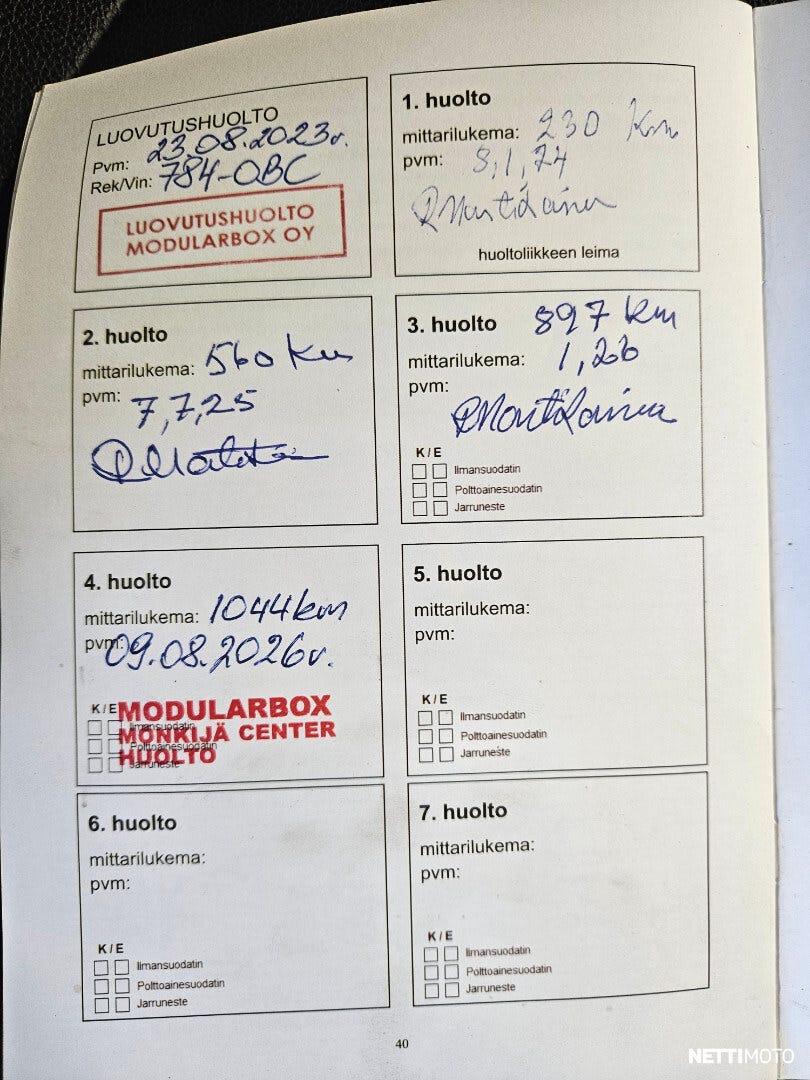 LUOVUTUSHUOLTO
Pvm: 23.08.2023v.
Rek/Vin: 784-OBC
LUOVUTUSHUOLTO
MODULARBOX OY
1. huolto
mittarilukema: 230 Km
pvm: 8,1,24
huoltoliikkeen leima
2. huolto
mittarilukema: 560 Km
pvm: 7,7,25
3. huolto 897 km
mittarilukema: 1,26
pvm:
K / E
Ilmansuodatin
Polttoainesuodatin
Jarruneste
4. huolto
mittarilukema: 1044km
pvm: 09.08.2026v.
K / E
MODULARBOX
MÖNKIJÄ CENTER
HUOLTO
Ilmansuodatin
Polttoainesuodatin
Jarruneste
5. huolto
mittarilukema:
pvm:
K / E
Ilmansuodatin
Polttoainesuodatin
Jarruneste
6. huolto
mittarilukema:
pvm:
K / E
Ilmansuodatin
Polttoainesuodatin
Jarruneste
7. huolto
mittarilukema:
pvm:
K / E
Ilmansuodatin
Polttoainesuodatin
Jarruneste
40
NETTIMOTO